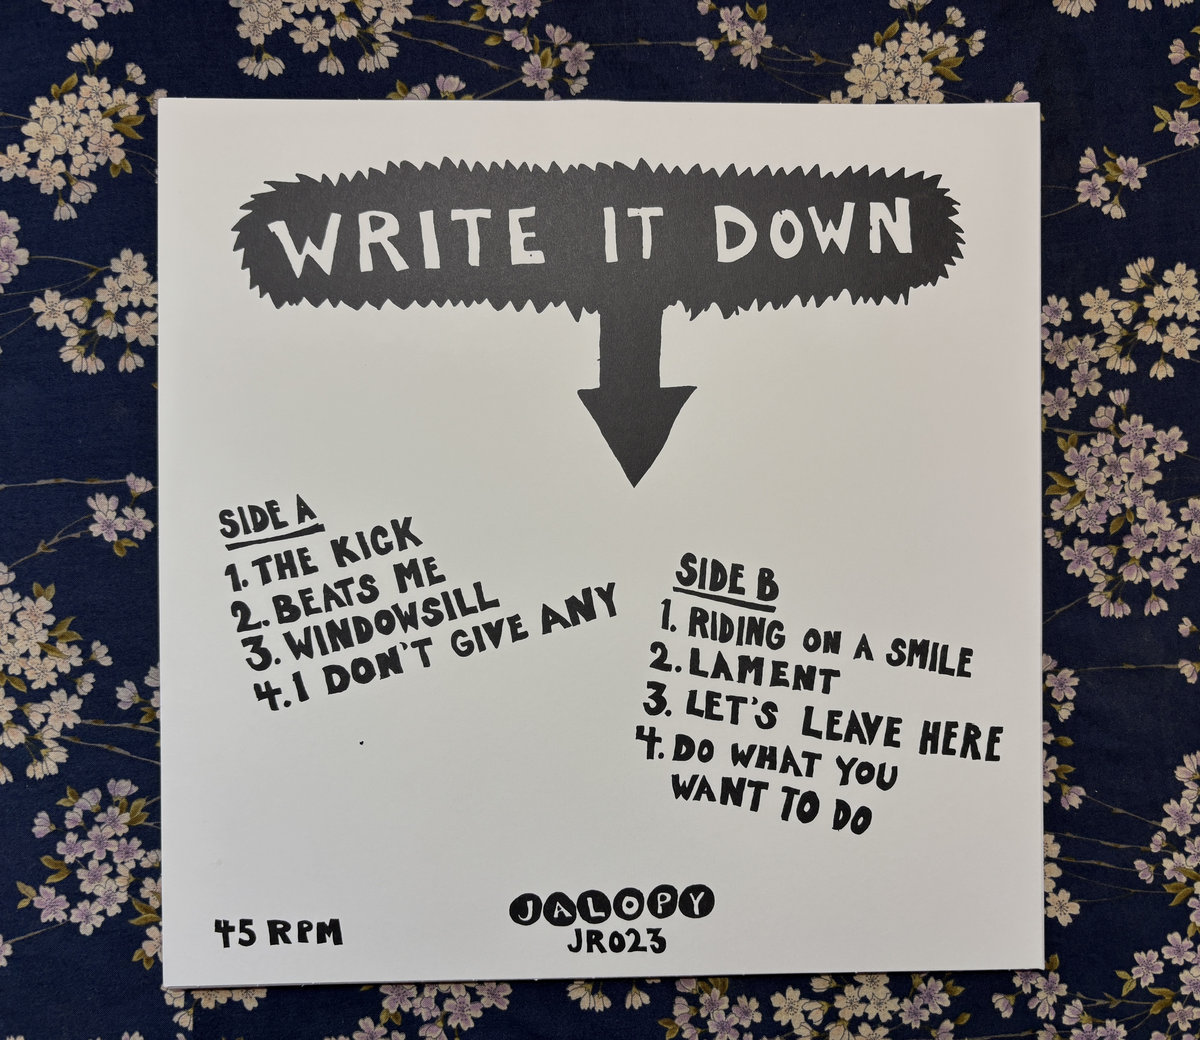 WRITE IT DOWN
SIDE A
1. THE KICK
2. BEATS ME
3. WINDOWSILL
4. I DON'T GIVE ANY
SIDE B
1. RIDING ON A SMILE
2. LAMENT
3. LET'S LEAVE HERE
4. DO WHAT YOU
WANT TO DO
45 RPM
JALOPY
JR023